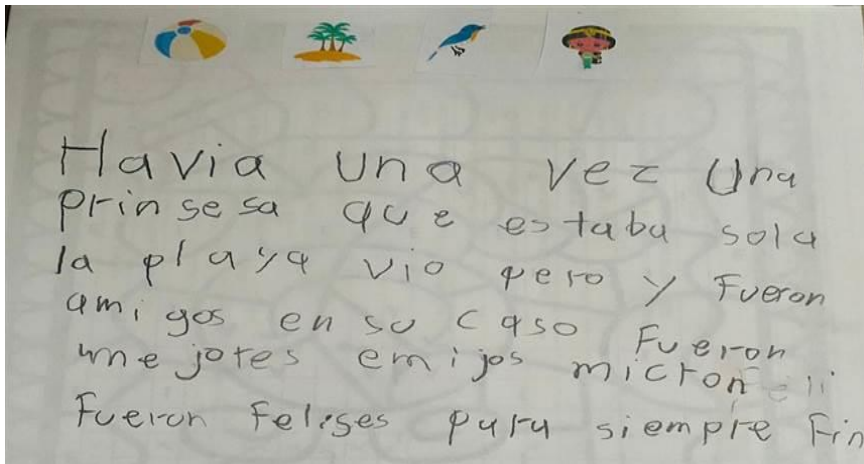 Havia una vez una
prinsesa que estaba sola
la playa vio pero y Fueron
amigos en su caso Fueron
mejotes emijos micron
Fueron Felises para siempre Fin